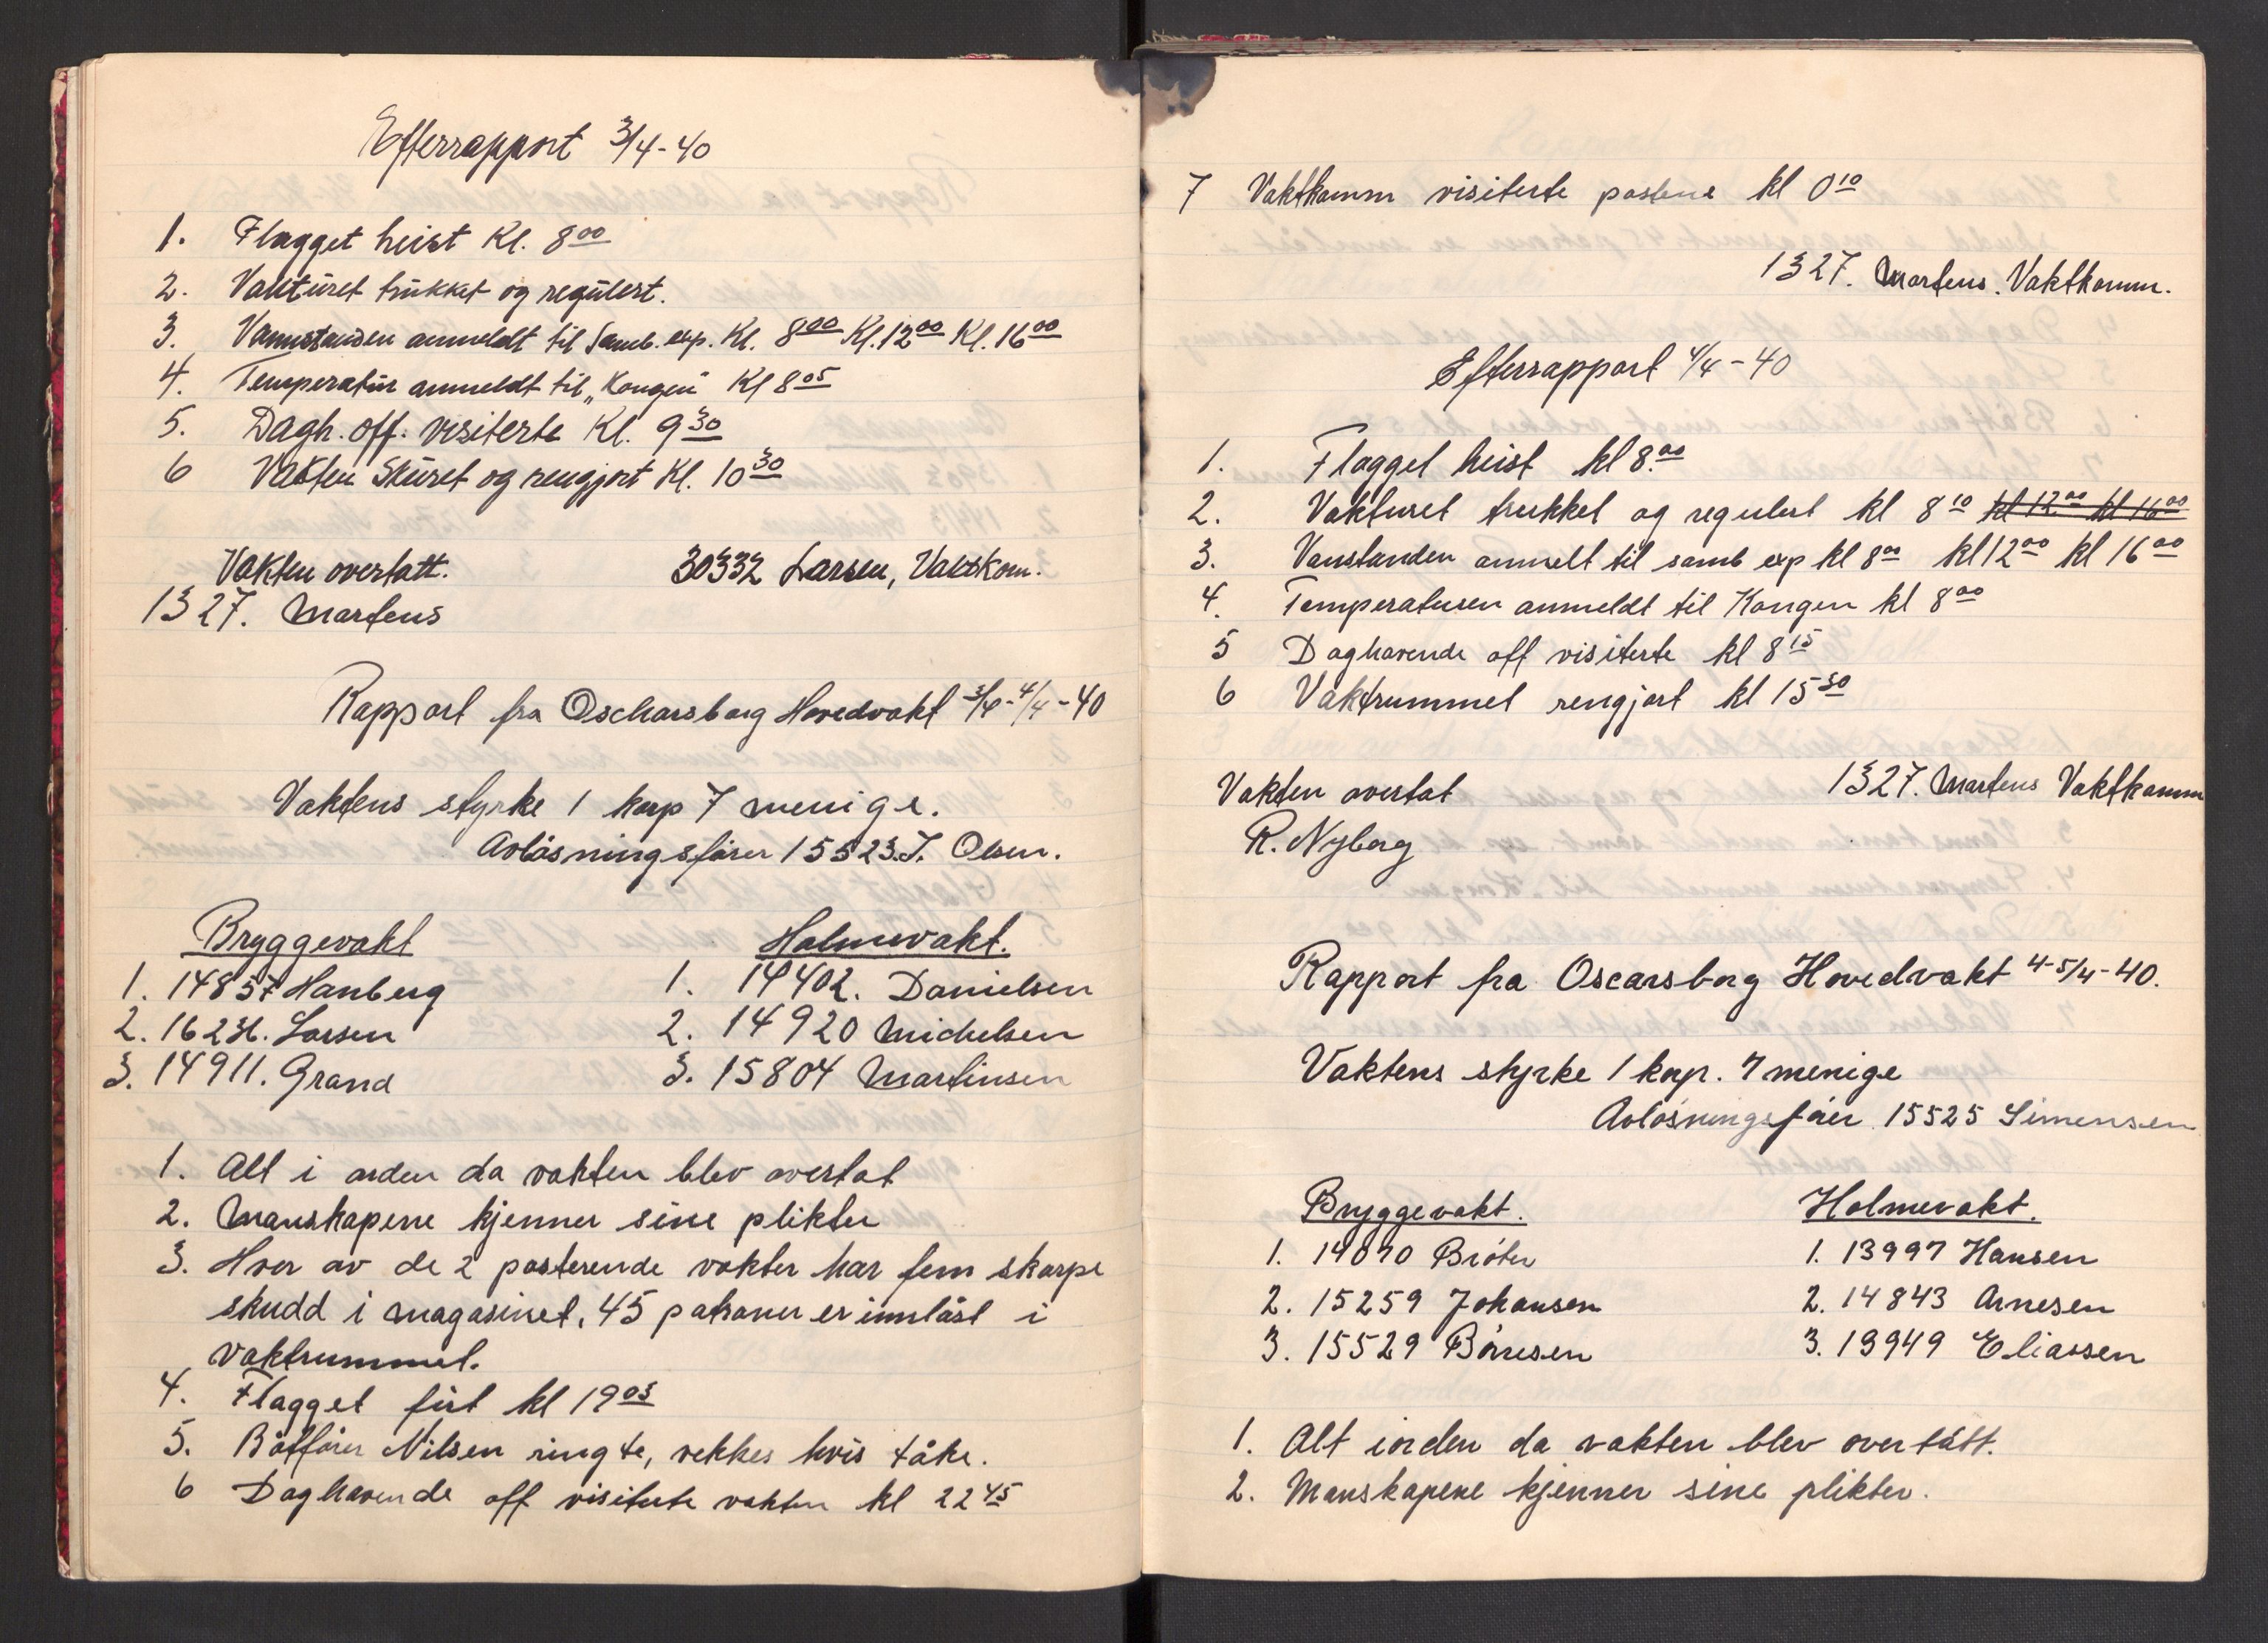 Efterrapport 3/4-40
1. Flagget heist Kl. 8 00
2. Vakturet trukket og regulert.
3. Vannstanden anmeldt til Samb. exp. Kl. 8 00 Kl. 12 00 Kl. 16 00
4. Temperatur anmeldt til „Kongen" Kl 8 05
5. Dagh. off. visiterte Kl. 9 30
6 Vakten Skuret og rengjort Kl. 10 30
Vakten overtatt. 30332 Larsen, Vaktkom.
1327. Martens
Rapport fra Oscharsborg Hovedvakt 3/4-4/4-40
Vaktens styrke 1 korp 7 menige.
Avløsningsfører 15523. J. Olsen.
Bryggevakt Holmevakt.
1. 14857 Hanberg 1. 14402. Danielsen
2. 162 H. Larsen 2. 14920 Michelsen
3. 14911. Grand 3. 15804 Martinsen
1. Alt i orden da vakten blev overtat
2. Manskapene kjenner sine plikter
3. Hver av de 2 posterende vakter har fem skarpe
skudd i magasinet, 45 patroner er innlåst i
vaktrummet.
4. Flagget firt kl 19 03
5. Båtfører Nilsen ringte, vekkes hvis tåke.
6 Daghavende off visiterte vakten kl 22 45
7 Vaktkomm visiterte postene kl 0 10
1327. Martens. Vaktkomm.
Efterrapport 4/4-40
1. Flagget heist kl 8. 00
2. Vakturet trukket og regulert kl 8 10 kl 12 00 kl 16 00
3. Vanstanden anmelt til samb exp kl 8 00 kl 12 00 kl 16 00
4. Temperaturen anmeldt til Kongen kl 8 00
5 Daghavende off visiterte kl 8 15
6 Vaktrummet rengjort kl 15 30
Vakten overtat 1327. Martens Vaktkomm
R. Nyborg
Rapport fra Oscarsborg Hovedvakt 4-5/4-40.
Vaktens styrke 1 korp. 7 menige
Avløsningsfører 15525 Simensen
Bryggevakt. Holmevakt.
1. 14070 Bråten 1. 13997 Hansen
2. 15259 Johansen 2. 14843 Arnesen
3. 15529 Børresen 3. 13949 Eliassen
1. Alt iorden da vakten blev overtatt.
2. Manskapene kjenner sine plikter.